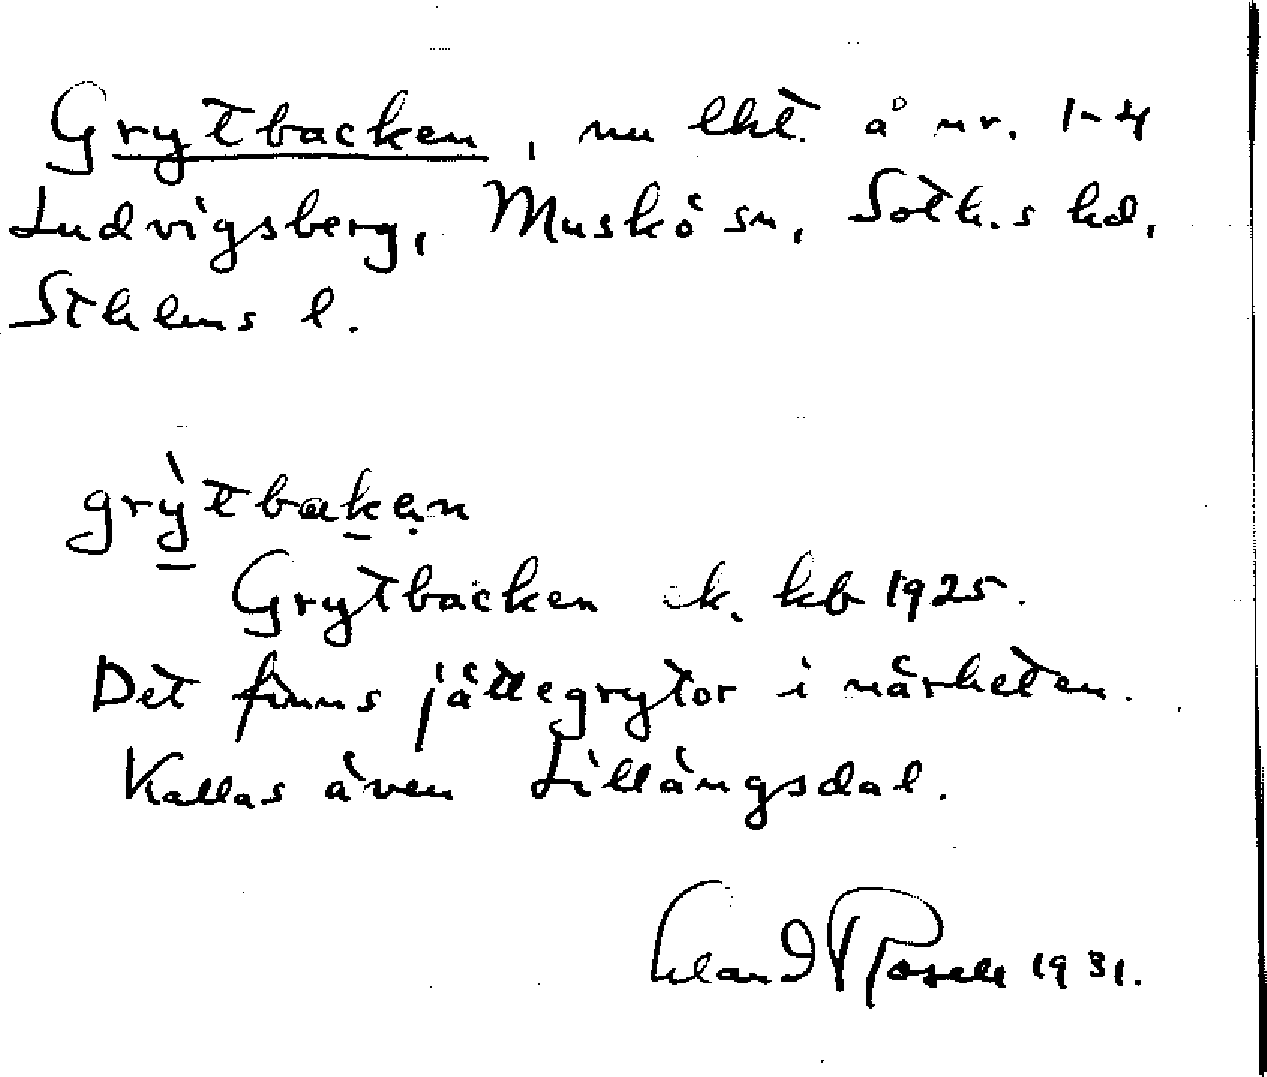 Grytbacken, nu lht. å nr. 1-4
Ludvigsberg, Muskö sn, Soth.s hd,
Sthlms l.
grỳtbakən
Grytbacken ek. kb 1925.
Det finns jättegrytor i närheten.
Kallas även Lillängsdal.
1931.